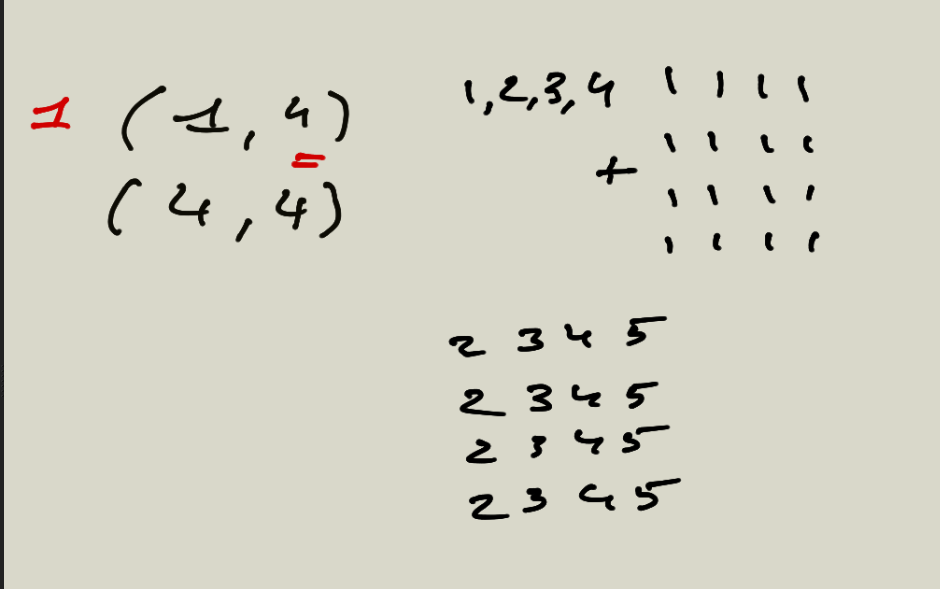 1 (1, 4)
(4, 4)
1,2,3,4 1 1 1 1
+ 1 1 1 1
1 1 1 1
1 1 1 1
2 3 4 5
2 3 4 5
2 3 4 5
2 3 4 5